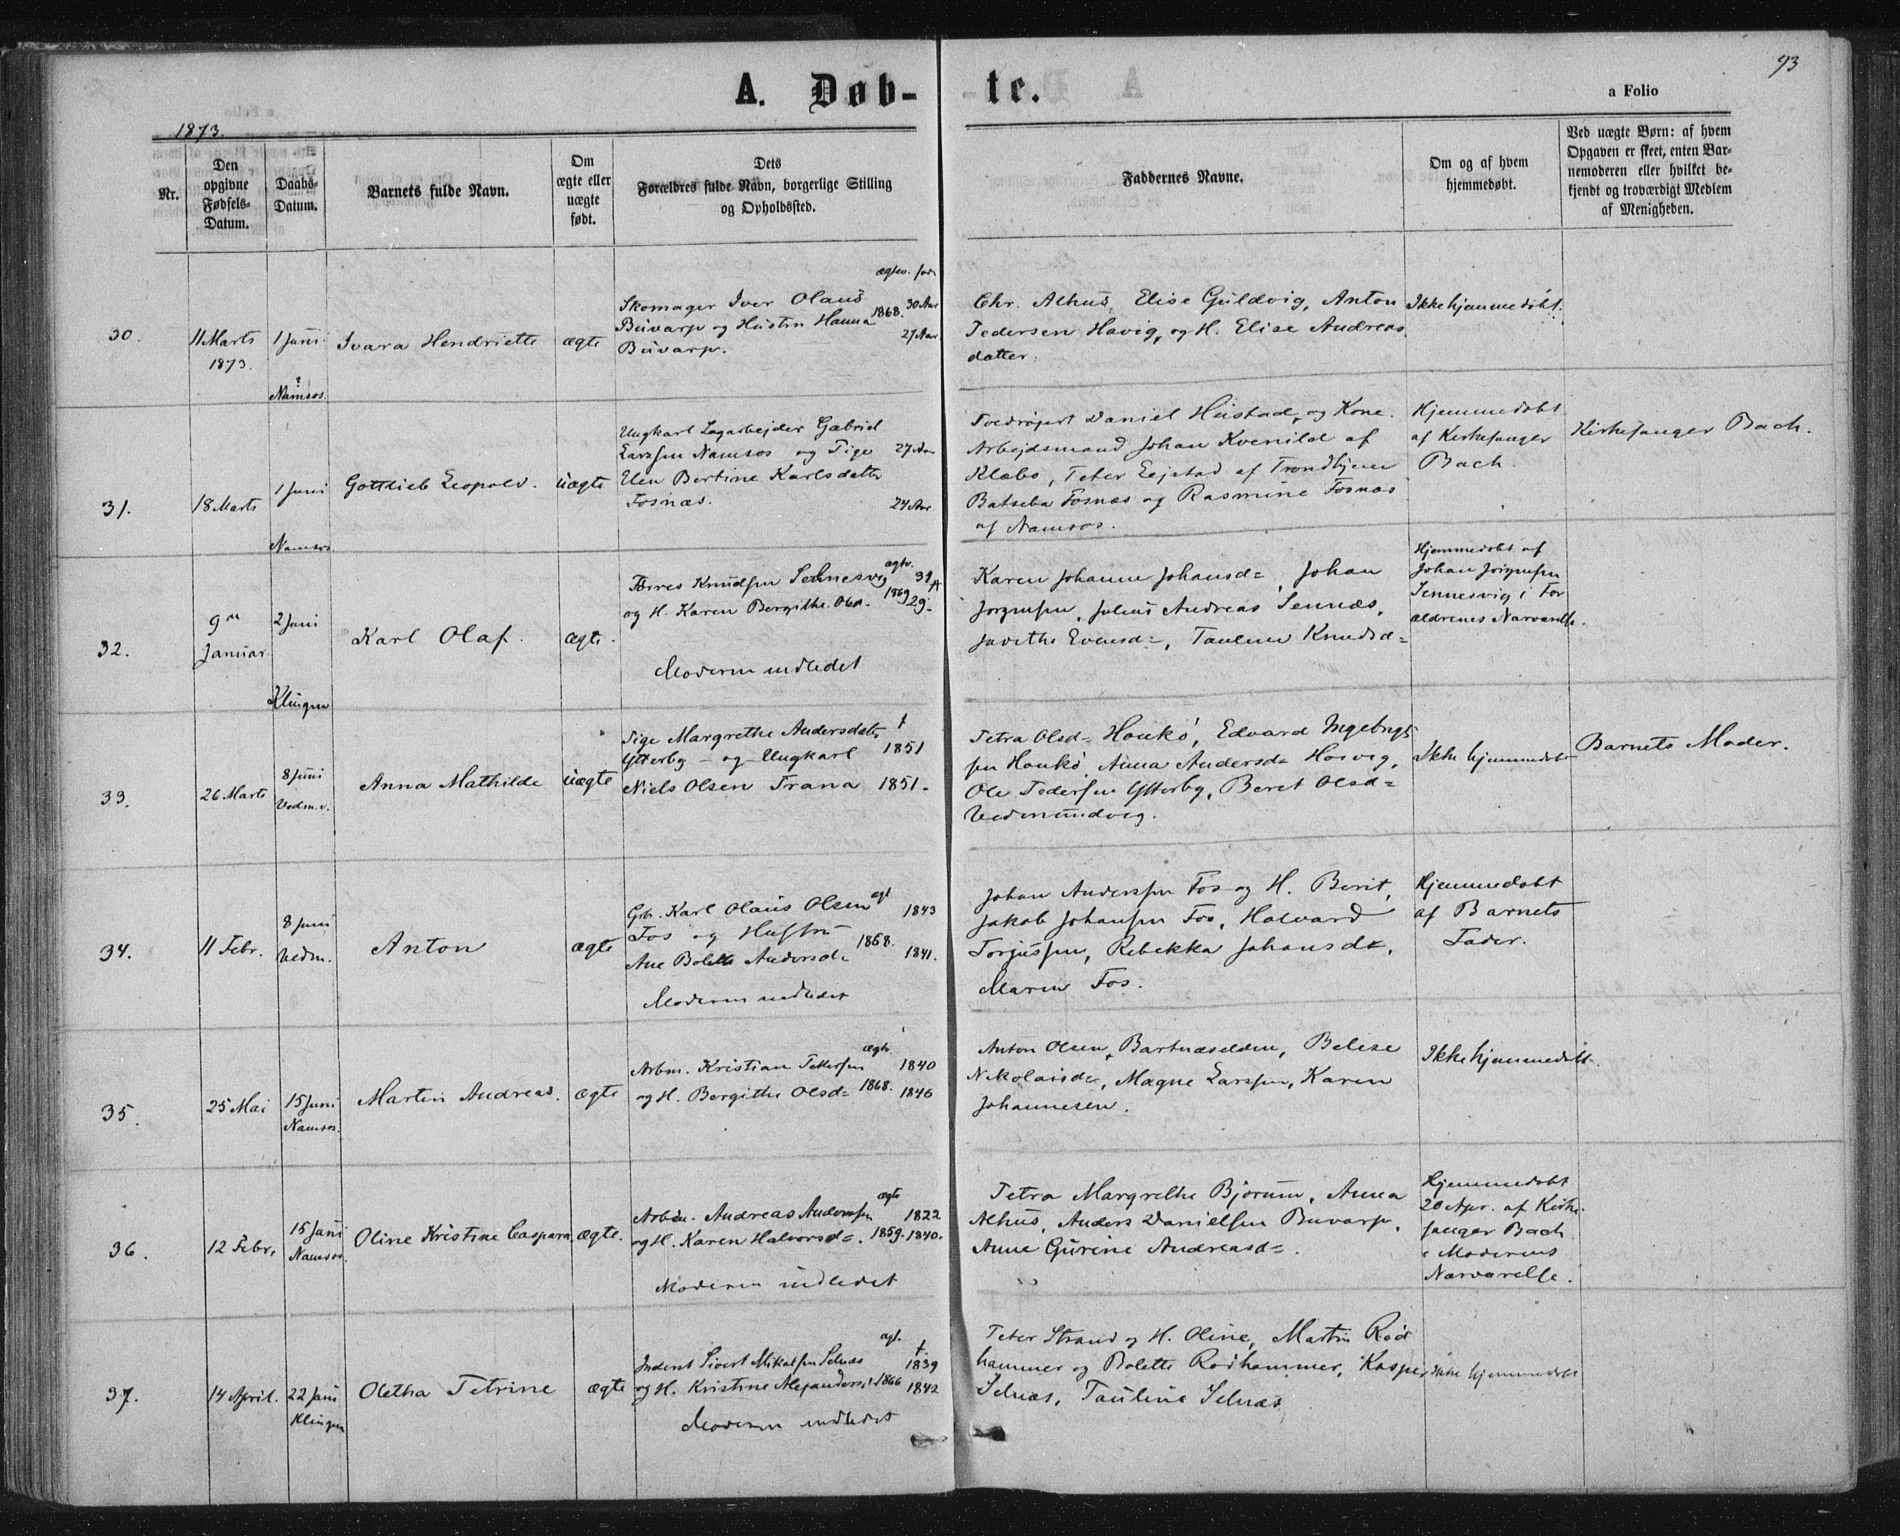 93
A. Døb-te.
a Folio
1873.
Nr.
Den opgivne Fødsels-Datum.
Daabs-Datum.
Barnets fulde Navn.
Om ægte eller uægte født.
Dets Forældres fulde Navn, borgerlige Stilling og Opholdssted.
Faddernes Navne.
Om og af hvem hjemmedøbt.
Ved uægte Børn: af hvem Opgaven er skeet, enten Barnemoderen eller hvilket bekjendt og troværdigt Medlem af Menigheden.
30.
11 Marts
1873.
1 Juni
Namsos.
Ivara Hendriette
ægte
Skomager Iver Olaus 30 Aar
Buvarp og Hustru Hanna 1868.
Buvarp. 27 Aar
Chr. Alhus, Elise Guldvig, Anton
Pedersen Havig, og H. Elise Andreas
datter.
Ikke hjemmedøbt.
31.
18 Marts
1 Juni
Namsos.
Gottlieb Leopold.
uægte
Ungkarl Sagarbejder Gabriel
Larssen Namsos og Pige 27 Aar
Elen Bertine Karlsdatter
Fosnæs. 24 Aar
Daniel Hustad, og Kone.
Arbejdsmand Johan Kvenild af
Klæbo, Peter Eejstad af Trondhjem
Batseba Fosnæs og Rasmine Fosnæs
af Namsos.
Hjemmedøbt
af Kirkesanger
Bach.
Kirkesanger Bach.
32.
9de
Januar.
2 Juni
Klingen
Karl Olaf.
ægte.
Knudsen Sennesvig
og H. Karen Bergithe Olsd. 1869 29
Moderen indledet
Karen Johanne Johansd=, Johan
Jørgensen, Julius Andreas Sennæs,
Evensd=, Pauline Knudsd=
Hjemmedøbt af
Johan Jörgensen
Sennesvig i For
ældrenes Nærværelse.
33.
26 Marts
8 Juni
Vedm.v.
Anna Mathilde
uægte
Pige Margrethe Andersdatter
Ytterby - og Ungkarl 1851
Niels Olsen Trana 1851.
Petra Olsd= Haukø, Edvard Ingebrigt
sen Haukø, Anna Andersd= Hosvig,
Ole Pedersen Ytterby, Beret Olsd=
Vedmundvig.
Ikke hjemmedøbt
Barnets Moder.
34.
11 Febr.
8 Juni
Vedm.
Anton
ægte
Gbr. Karl Olaus Olsen 1843
Fos og Hustru 1868.
Ane Bolette Andersd= 1841.
Moderen indledet
Johan Anderssen Fos og H. Berit,
Jakob Johansen Fos, Halvard
Torjussen, Rebekka Johansd=,
Maren Fos.
Hjemmedøbt
af Barnets
Fader.
35.
25 Mai
15 Juni
Namsos.
Martin Andreas.
ægte
Arbm. Kristian Pettersen 1840
og H. Bergithe Olsd= 1868. 1846
Anton Olsen, Bartnæselden, Belise
Nikolaisd=, Magne Larssen, Karen
Johannesen.
Ikke hjemmedøbt
36.
12 Febr.
15 Juni
Namsos.
Oline Kristine Caspara
ægte.
Arbm. Andreas Anderssen 1822
og H. Karen Halvorsd=. 1859. 1840.
Moderen indledet
Petra Margrethe Bjørum, Anna
Alhus, Anders Danielsen Buvarp,
Anne Gurine Andreasd=.
Hjemmedøbt
20 Apr. af Kirke
sanger Bach
i Moderens
Nærværelse.
37.
14 April.
22 Juni
Klingen
Oletha Petrine
ægte
Inderst Sivert Mikalsen Selnæs 1839
og H. Kristine Alexandersd 1866 1842
Moderen indledet
Peter Strand og H. Oline, Martin Rød
hammer og Bolette Rødhammer, Kasper
Selnæs, Pauline Selnæs
Ikke hjemmedøbt